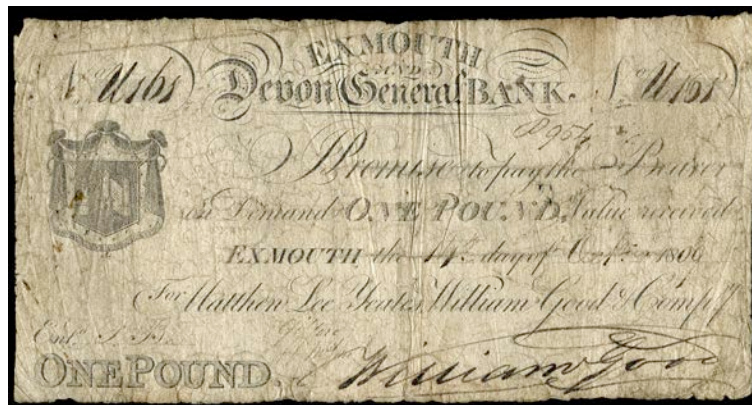 EXMOUTH
AND
Devon General BANK.
No U161 No U161
I Promise to pay the Bearer
on Demand ONE POUND. Value received
EXMOUTH the 14th day of 1806
For Matthew Lee Yeates, William Good & Compy
Entd
ONE POUND. William Good